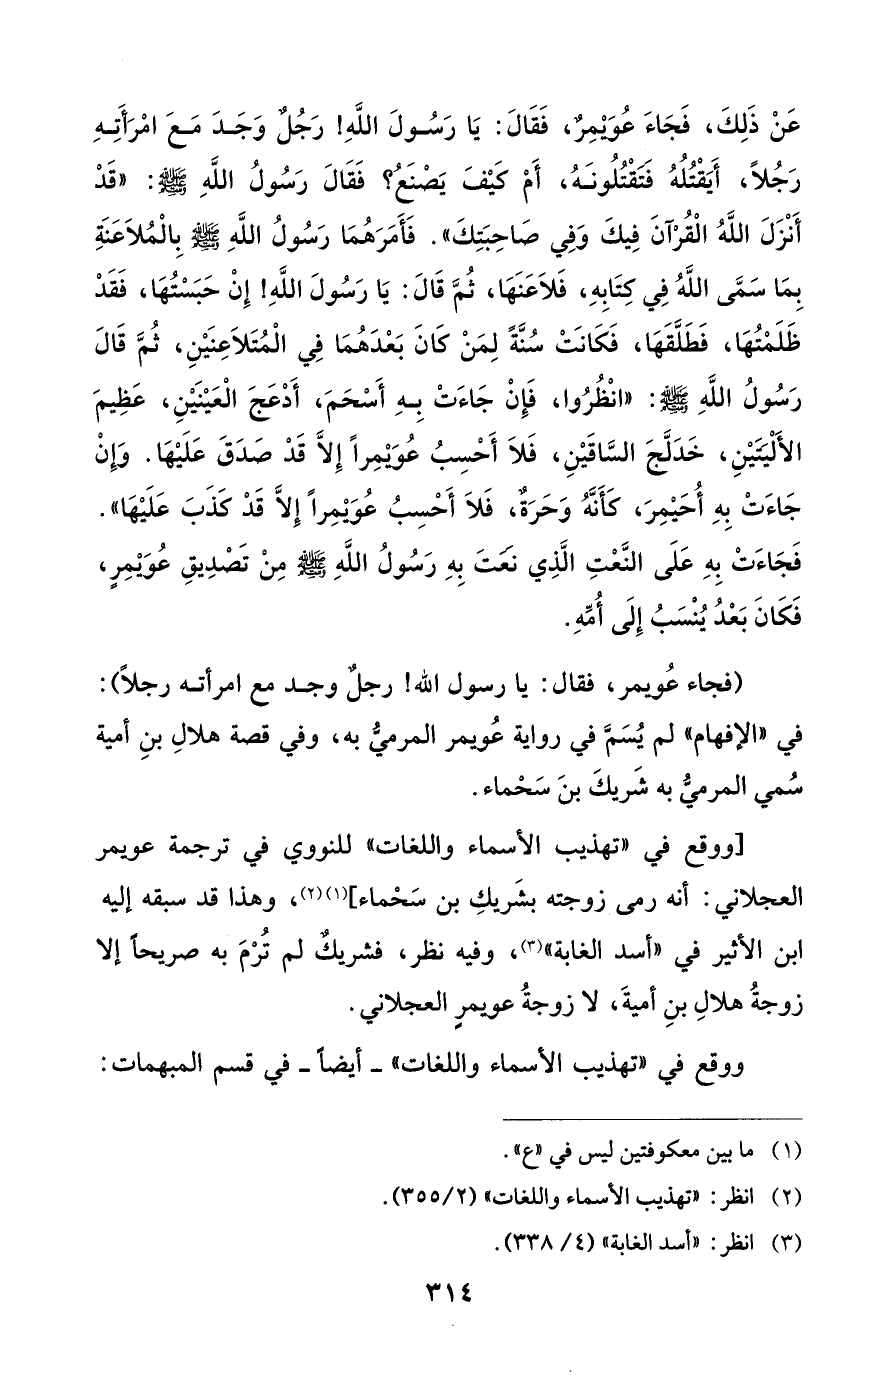 عَنْ ذَلِكَ، فَجَاءَ عُوَيْمِرٌ، فَقَالَ: يَا رَسُولَ اللَّهِ! رَجُلٌ وَجَدَ مَعَ امْرَأَتِهِ
رَجُلاً، أَيَقْتُلُهُ فَتَقْتُلُونَهُ، أَمْ كَيْفَ يَصْنَعُ؟ فَقَالَ رَسُولُ اللَّهِ ﷺ: «قَدْ
أَنْزَلَ اللَّهُ الْقُرْآنَ فِيكَ وَفِي صَاحِبَتِكَ». فَأَمَرَهُمَا رَسُولُ اللَّهِ ﷺ بِالْمُلاَعَنَةِ
بِمَا سَمَّى اللَّهُ فِي كِتَابِهِ، فَلاَعَنَهَا، ثُمَّ قَالَ: يَا رَسُولَ اللَّهِ! إِنْ حَبَسْتُهَا، فَقَدْ
ظَلَمْتُهَا، فَطَلَّقَهَا، فَكَانَتْ سُنَّةً لِمَنْ كَانَ بَعْدَهُمَا فِي الْمُتَلاَعِنَيْنِ، ثُمَّ قَالَ
رَسُولُ اللَّهِ ﷺ: «انْظُرُوا، فَإِنْ جَاءَتْ بِهِ أَسْحَمَ، أَدْعَجَ الْعَيْنَيْنِ، عَظِيمَ
الأَلْيَتَيْنِ، خَدَلَّجَ السَّاقَيْنِ، فَلاَ أَحْسِبُ عُوَيْمِراً إِلاَّ قَدْ صَدَقَ عَلَيْهَا. وَإِنْ
جَاءَتْ بِهِ أُحَيْمِرَ، كَأَنَّهُ وَحَرَةٌ، فَلاَ أَحْسِبُ عُوَيْمِراً إِلاَّ قَدْ كَذَبَ عَلَيْهَا».
فَجَاءَتْ بِهِ عَلَى النَّعْتِ الَّذِي نَعَتَ بِهِ رَسُولُ اللَّهِ ﷺ مِنْ تَصْدِيقِ عُوَيْمِرٍ،
فَكَانَ بَعْدُ يُنْسَبُ إِلَى أُمِّهِ.
(فجاء عُويمر، فقال: يا رسول الله! رجلٌ وجد مع امرأته رجلاً):
في «الإفهام» لم يُسَمَّ في رواية عُويمر المرميُّ به، وفي قصة هلالِ بنِ أمية
سُمي المرميُّ به شَريكَ بنَ سَحْماء.
[ووقع في «تهذيب الأسماء واللغات» للنووي في ترجمة عويمر
العجلاني: أنه رمى زوجته بشَريكِ بن سَحْماء](١)(٢)، وهذا قد سبقه إليه
ابن الأثير في «أسد الغابة»(٣)، وفيه نظر، فشريكٌ لم تُرْمَ به صريحاً إلا
زوجةُ هلالِ بنِ أميةَ، لا زوجةُ عويمرٍ العجلاني.
ووقع في «تهذيب الأسماء واللغات» - أيضاً - في قسم المبهمات:
(١) ما بين معكوفتين ليس في «ع».
(٢) انظر: «تهذيب الأسماء واللغات» (٢/ ٣٥٥).
(٣) انظر: «أسد الغابة» (٤/ ٣٣٨).
٣١٤